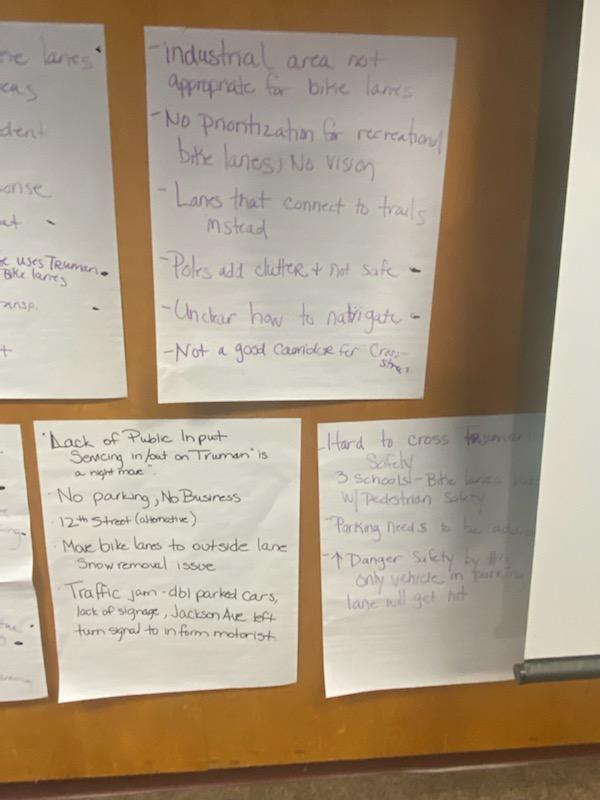 lanes
dent
onse
uses Truman
Bike lanes
- industrial area not
appropriate for bike lanes
- No Prioritization for recreational
bike lanes; No Vision
- Lanes that connect to trails
instead
- Poles add clutter + not safe -
- Unclear how to natvigate -
- Not a good Corridore for Cross-
street
Lack of Public Input
Servicing in/out on Truman" is
a night mare".
No parking, No Business
12th Street (alternative)
Move bike lanes to outside lane
Snow removal issue
Traffic jam - dbl parked cars,
lack of signage, Jackson Ave left
turn signal to inform motorist
- Hard to cross Truman
Safely
3 Schools! - Bike lanes
w/ Pedestrian Safety
- Parking needs to be
- ↑ Danger Safety by
only vehicle in parking
lane will get hit